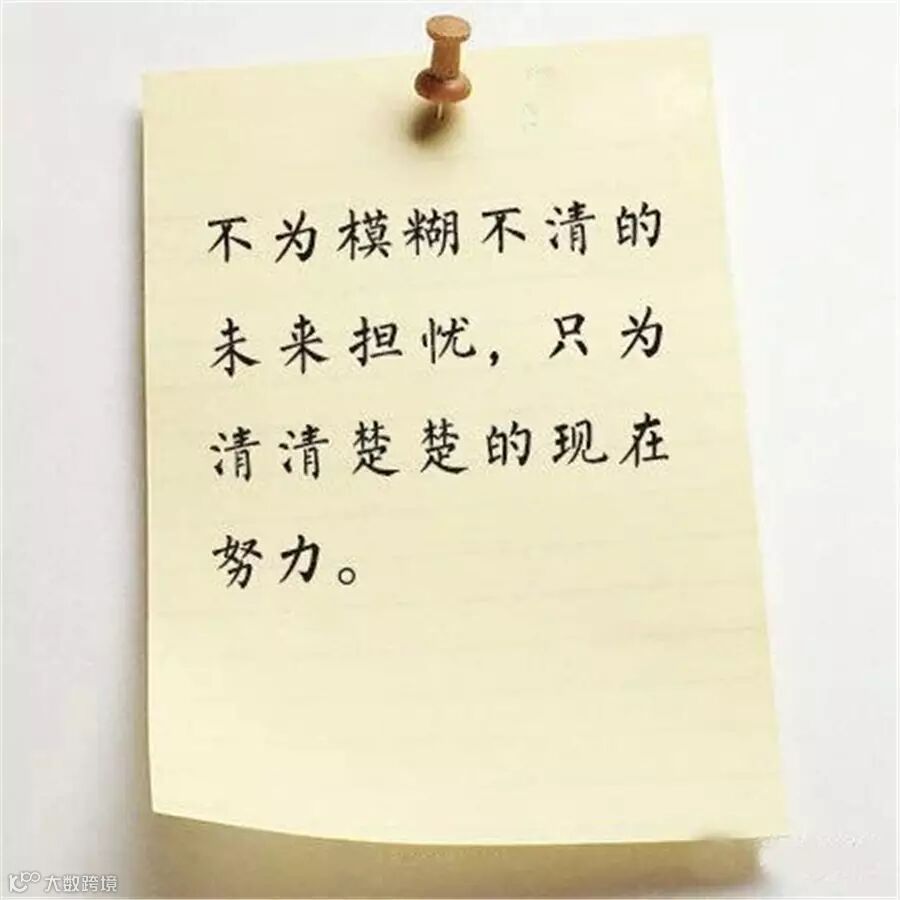 不为模糊不清的
未来担忧，只为
清清楚楚的现在
努力。
大数跨境